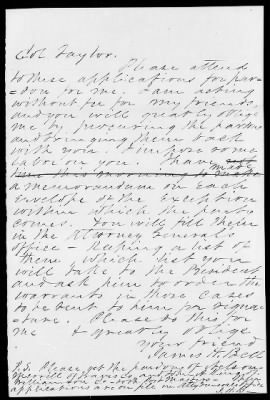 Col Taylor.
Please attend
to these applications for par=
=don for me. I am acting
without fee for my friends,
and you will greatly oblige
me by procuring the pardons
and bringing them back
with you. I impose some
labor on you. I have made
a memorandum on each
envelope of the exception
within which the party
comes. You will file them
in the Attorney General's
office - keeping a list of
them, which list you
will take to the President
and ask him to order the
warrants in those cases
to be sent to him for signa=
=ture. Please do this for
me & greatly oblige
Your friend
James H. Bell
P.S. Please get the pardons of
applications are on file in
J.H.B.